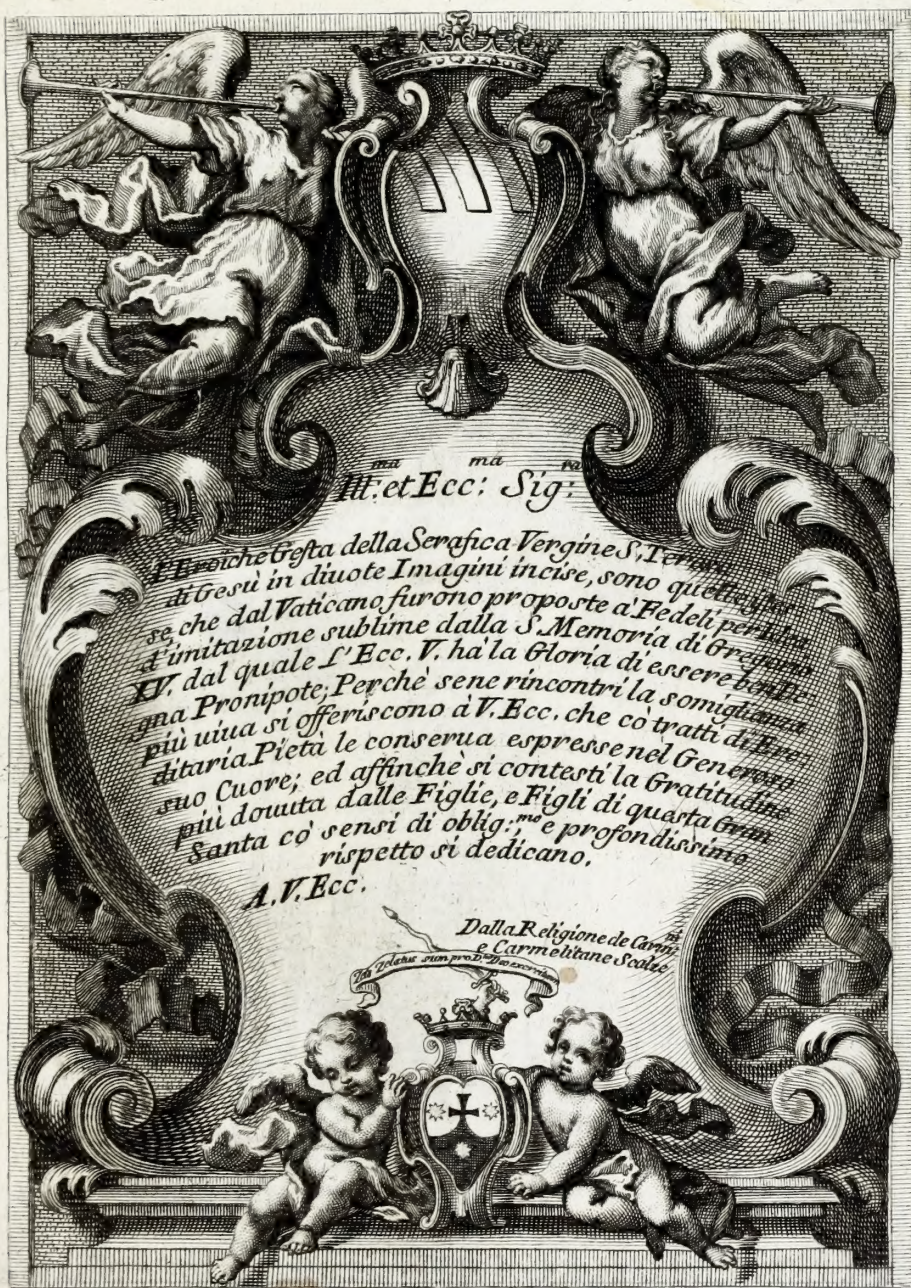 Ill:ma et Ecc:ma Sig:ra
L'Eroiche Gesta della Serafica Vergine S. Teresa
di Gesù in diuote Imagini incise, sono quelle stes-
se, che dal Vaticano furono proposte a' Fedeli per
d'imitazione sublime dalla S. Memoria di Gregorio
XV. dal quale L'Ecc. V. hà la Gloria di essere ben De-
gna Pronipote; Perchè sene rincontri la somiglianza
più uiua si offeriscono à V. Ecc. che cò tratti di Ere:
ditaria Pietà le conserua espresse nel Generoso
suo Cuore; ed affinchè si contesti la Gratitudine
più douuta dalle Figlie, e Figli di questa Gran
Santa cò sensi di oblig:mo e profondissimo
rispetto si dedicano.
A. V. Ecc.
Dalla Religione de Carmni
e Carmelitane Scalze
Zelo Zelatus sum pro D.no Deo exercituum